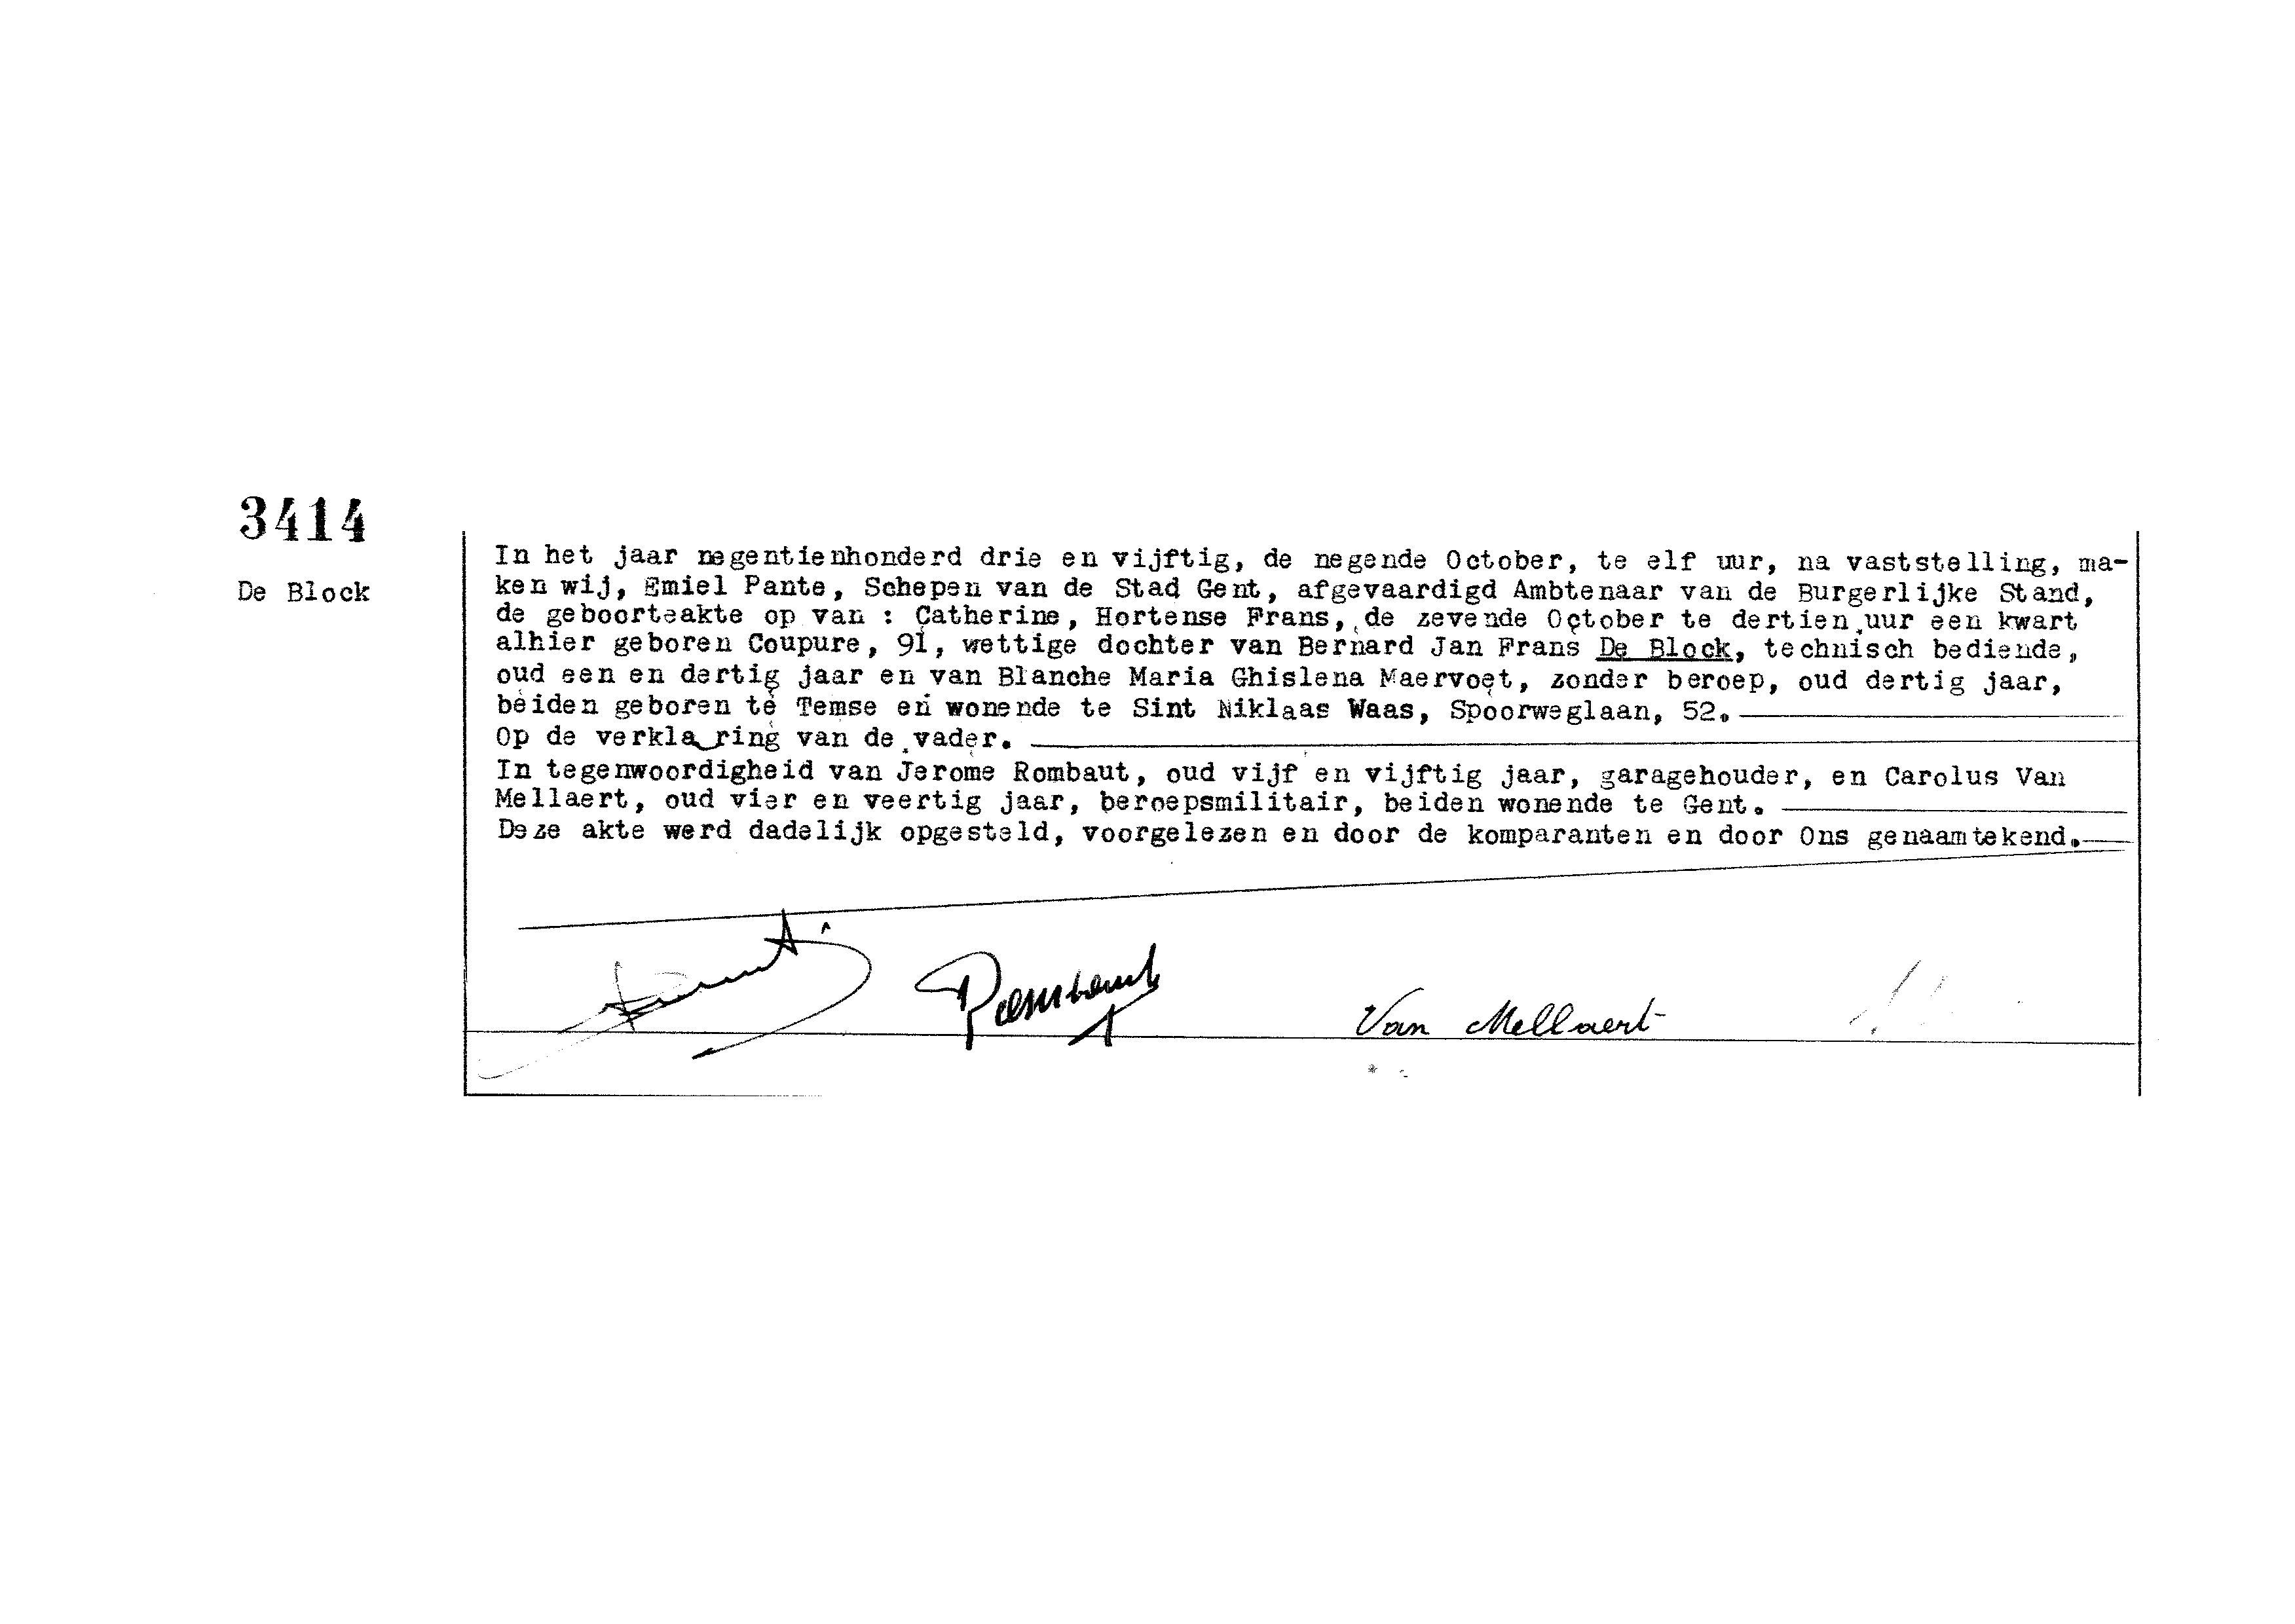 3414
De Block
In het jaar negentienhonderd drie en vijftig, de negende October, te elf uur, na vaststelling, ma-
ken wij, Emiel Pante, Schepen van de Stad Gent, afgevaardigd Ambtenaar van de Burgerlijke Stand,
de geboorteakte op van : Catherine, Hortense Frans, de zevende October te dertien uur een kwart
alhier geboren Coupure, 91, wettige dochter van Bernard Jan Frans De Block, technisch bediende,
oud een en dertig jaar en van Blanche Maria Ghislena Maervoet, zonder beroep, oud dertig jaar,
beiden geboren te Temse en wonende te Sint Niklaas Waas, Spoorweglaan, 52.
Op de verklaring van de vader.
In tegenwoordigheid van Jerome Rombaut, oud vijf en vijftig jaar, garagehouder, en Carolus Van
Mellaert, oud vier en veertig jaar, beroepsmilitair, beiden wonende te Gent.
Deze akte werd dadelijk opgesteld, voorgelezen en door de komparanten en door Ons genaamtekend.
Rombaut
Van Mellaert